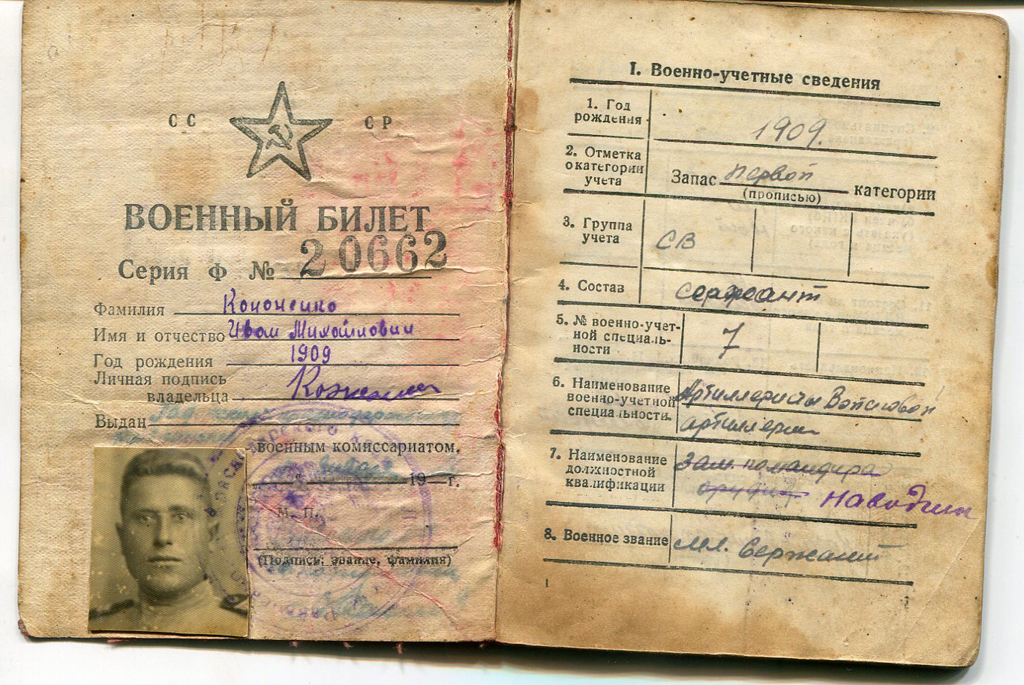 СС СР
ВОЕННЫЙ БИЛЕТ
Серия Ф № 20662
Фамилия Кононенко
Имя и отчество Иван Михайлович
Год рождения 1909
Личная подпись
владельца
Выдан
военным комиссариатом.
19 г.
М. П.
(Подпись, звание, фамилия)
I. Военно-учетные сведения
1. Год
рождения
1909.
2. Отметка
о категории
учета
Запас первой категории
(прописью)
3. Группа
учета
СВ
4. Состав сержант
5. № военно-учет-
ной специаль-
ности
7
6. Наименование
военно-учетной
специальности.
Артиллеристы Войсковой
артиллерии
7. Наименование
должностной
квалификации
зам. командира
орудия наводчик
8. Военное звание мл. Сержант
1